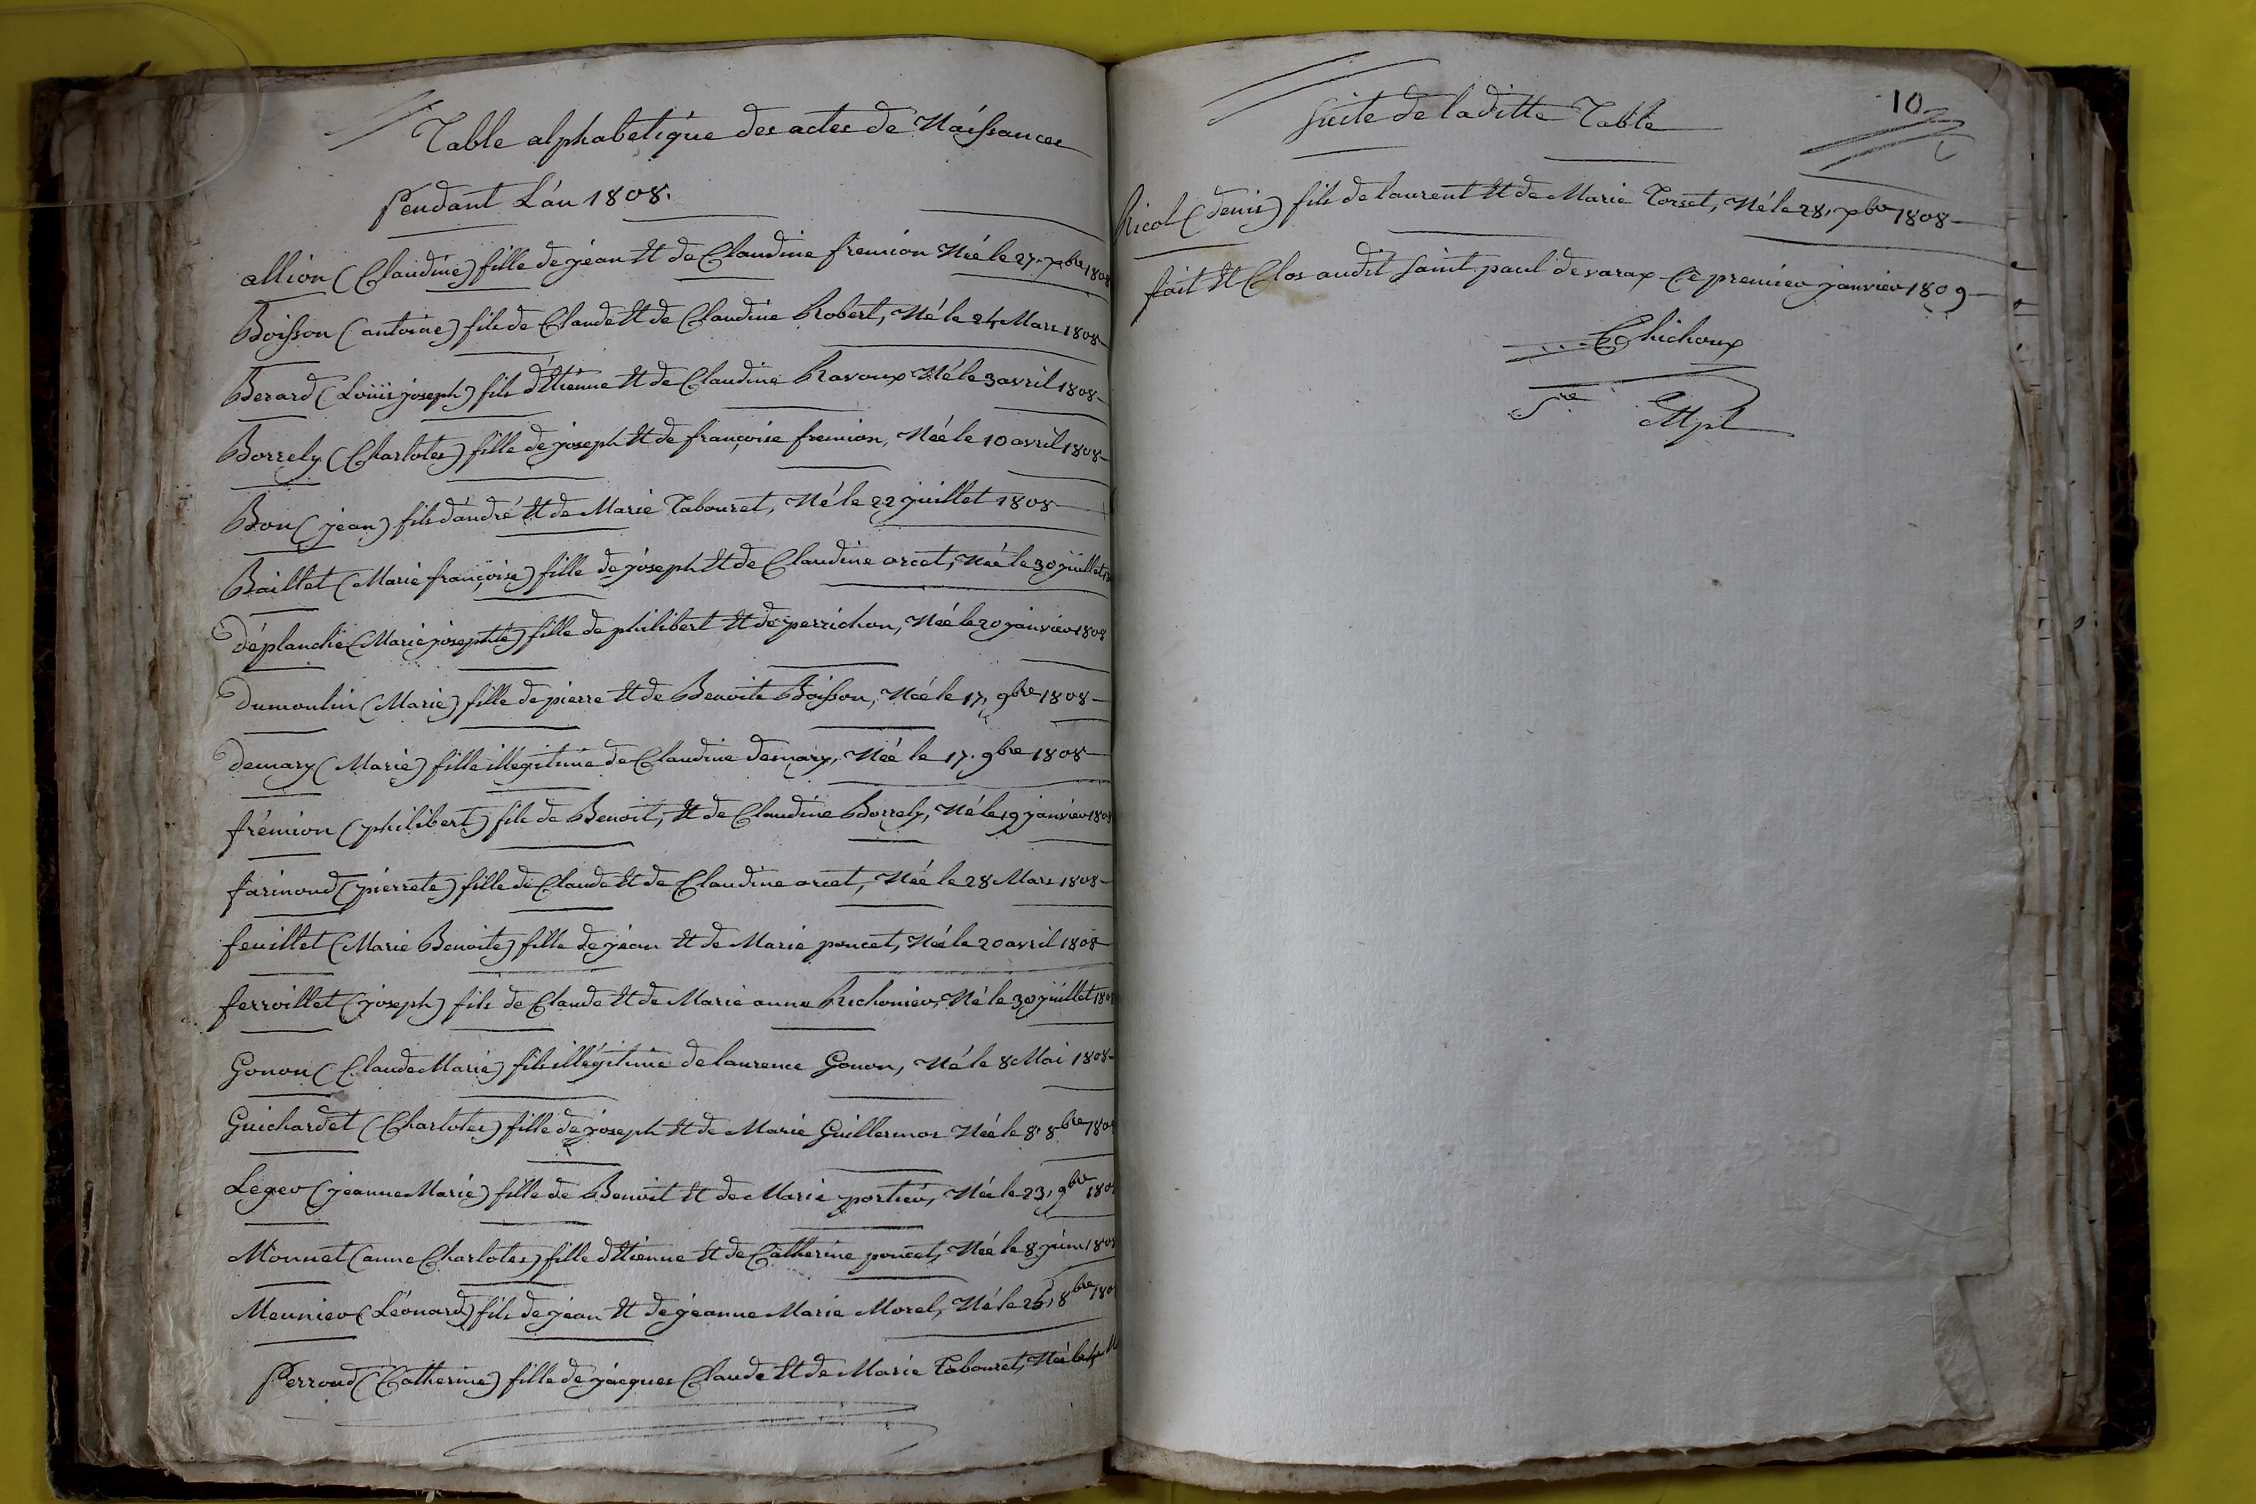 Table alphabetique des actes de Naissances
Pendant L'an 1808.
allion (Claudine) fille de jean Et de Claudine fremion Née le 27. 7bre 1808
Boisson (antoine) fils de Claude Et de Claudine Robert, Né le 24 Mars 1808
Berard (Loüis joseph) fils d'Etienne Et de Claudine Ravoux Né le 3 avril 1808
Borrely (Charlotes) fille de joseph Et de françoise fremion, Née le 10 avril 1808
Bon (jean) fils d'andré Et de Marie Tabouret, Né le 22 juillet 1808
Baillet (Marie françoise) fille de joseph Et de Claudine orcet, Née le 30 juillet
déplanche (Marie josephte) fille de philibert Et de perrichon, Née le 20 janvier 1808
Dumoulin (Marie) fille de pierre Et de Benoite Boisson, Née le 17, 9bre 1808
demary (Marie) fille illegitime de Claudine demary, Née le 17. 9bre 1808
frémion (philibert) fils de Benoit, Et de Claudine Borrely, Né le 19 janvier 1808
farinoud (pierrete) fille de Claude Et de Claudine orcet, Née le 28 Mars 1808
feuillet (Marie Benoite) fille de jean Et de Marie poncet, Née le 20 avril 1808
ferroillet (joseph) fils de Claude Et de Marie anne Richonier, Né le 30 juillet 1808
Gonon (Claude Marie) fils illégitime de laurence Gonon, Né le 8 Mai 1808
Guichardet (Charlotes) fille de joseph Et de Marie Guillermos Née le 8. 8bre 1808
Leger (jeanne Marie) fille de Benoit Et de Marie portier, Née le 23, 9bre 1808
Monnet (anne Charlotes) fille d'Etienne Et de Catherine poncet, Née le 8 juin 1808
Meunier (Léonard) fils de jean Et de jeanne Marie Morel, Né le 26, 8bre 1808
Perroud (Catherine) fille de jacques Claude Et de Marie Tabouret, Née le
10
Suite de laditte Table
Ricol (denis) fils de laurent Et de Marie Torset, Né le 28, 7bre 1808
fait Et Clos audit Saint paul de varax Ce premier janvier 1809
Chichoux